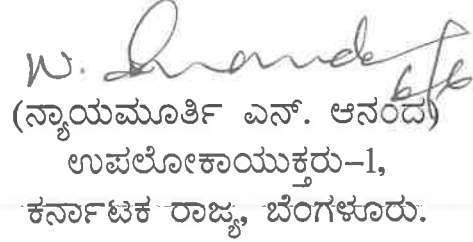 N. Ananda
6/6
(ನ್ಯಾಯಮೂರ್ತಿ ಎನ್. ಆನಂದ)
ಉಪಲೋಕಾಯುಕ್ತರು–1,
ಕರ್ನಾಟಕ ರಾಜ್ಯ, ಬೆಂಗಳೂರು.